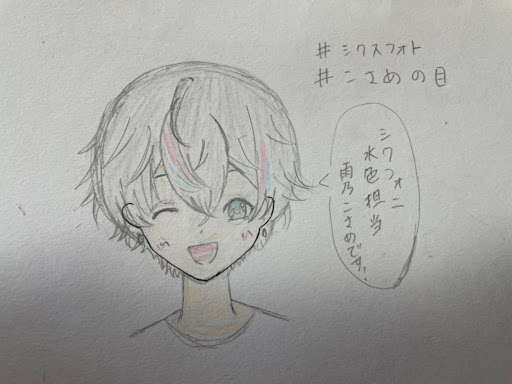 #シクスフォト
#こさめの目
シクフォニ
水色担当
雨乃こさめです!